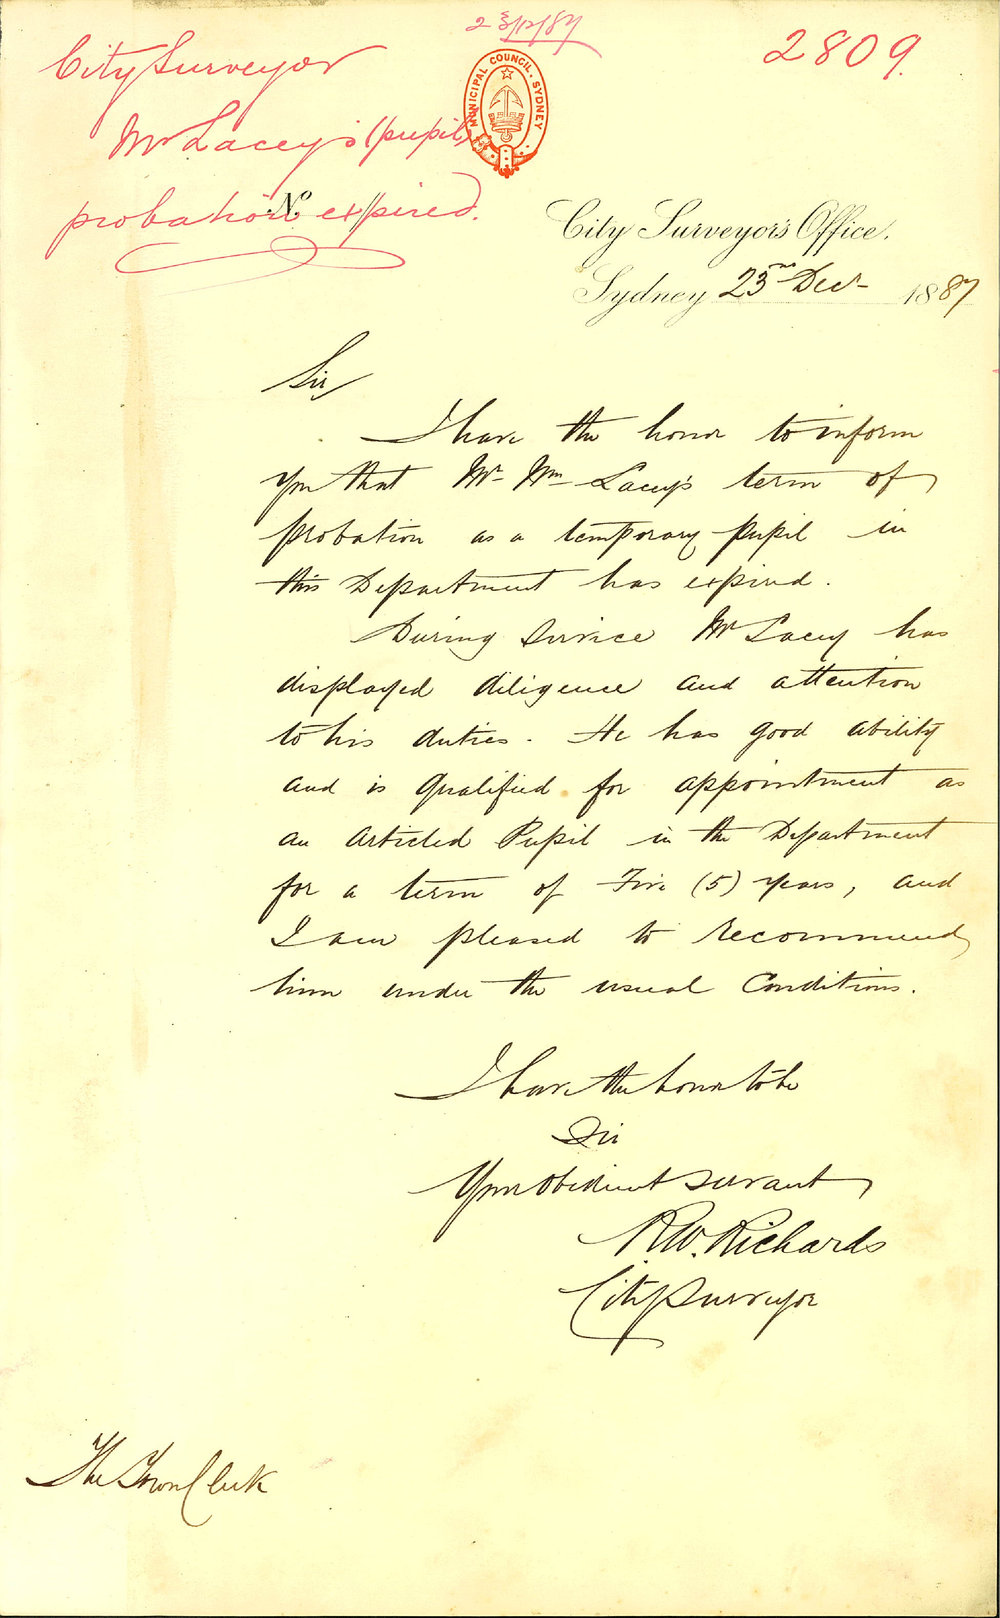 23/12/87
2809.
City Surveyor
Mr Lacey's (pupil)
probation expired.
MUNICIPAL COUNCIL. SYDNEY
No.
City Surveyor's Office.
Sydney 23rd Decr 1887
Sir
I have the honor to inform
you that Mr Wm Lacey's term of
probation as a temporary pupil in
this Department has expired.
During Service Mr Lacey has
displayed diligence and attention
to his duties. He has good ability
and is qualified for appointment as
an Articled Pupil in the Department
for a term of Five (5) years, and
I am pleased to recommend
him under the usual Conditions.
I have the honor to be
Sir
Your obedient servant
R.W. Richards
City Surveyor
The Town Clerk